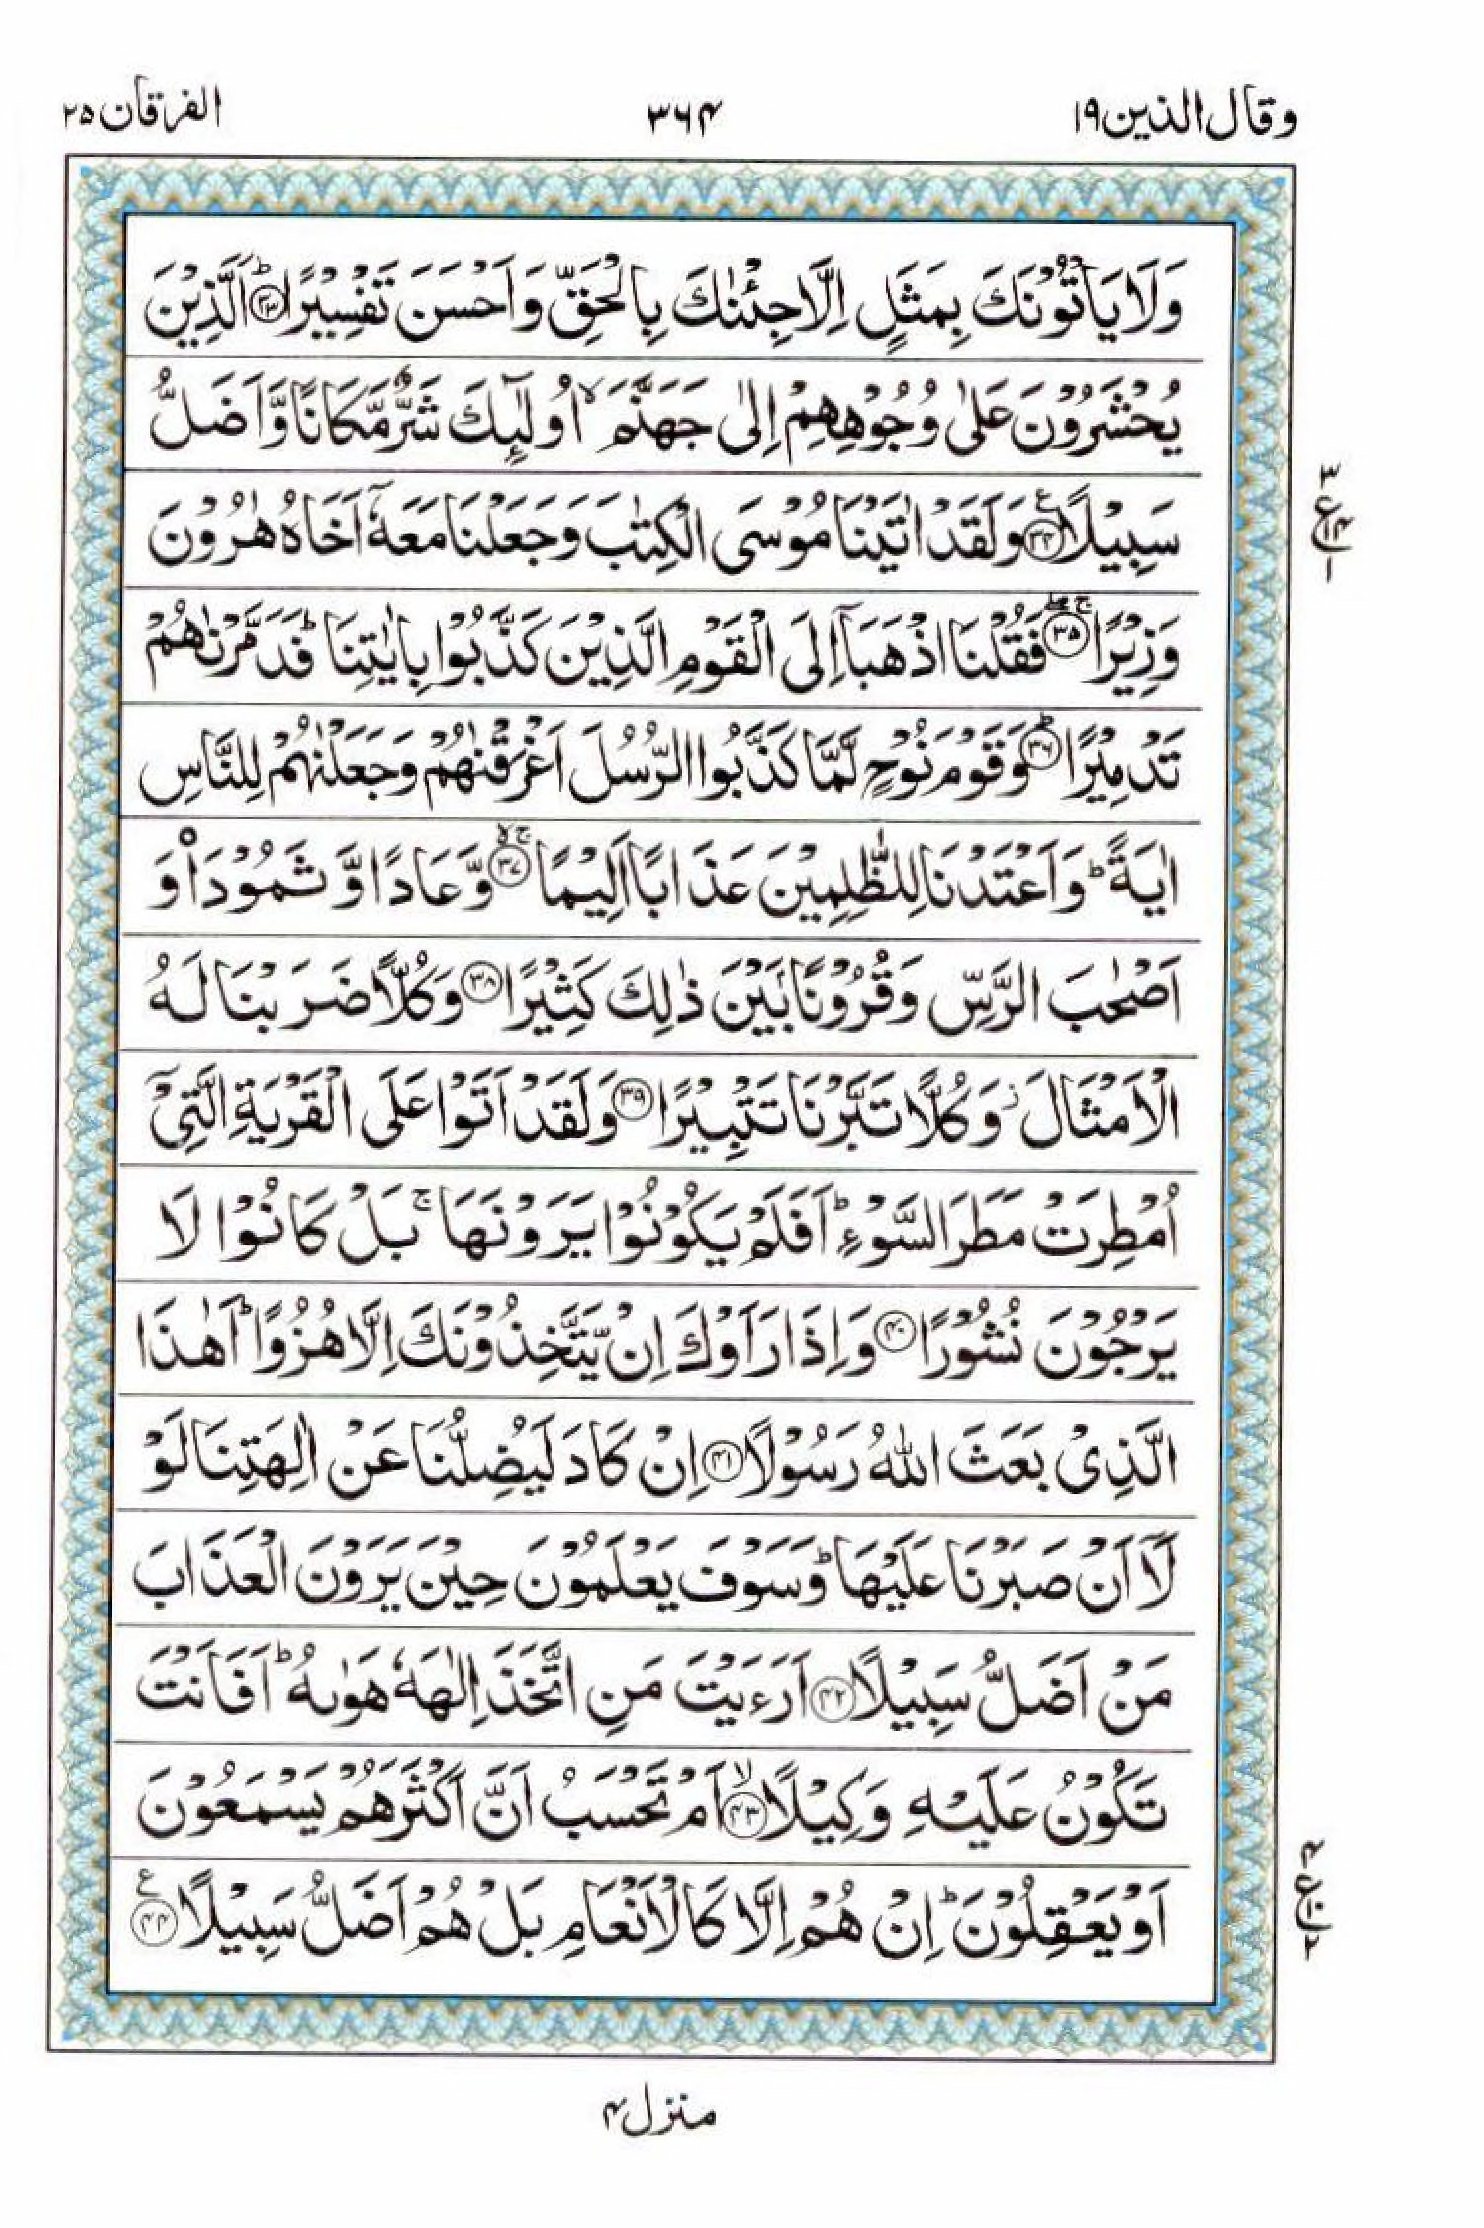 وقال الذین ۱۹ ۳۶۴ الفرقان ۲۵
وَلَا یَاْتُوْنَكَ بِمَثَلٍ اِلَّا جِئْنٰكَ بِالْحَقِّ وَاَحْسَنَ تَفْسِیْرًاؕ۝۳۳ اَلَّذِیْنَ
یُحْشَرُوْنَ عَلٰی وُجُوْهِهِمْ اِلٰی جَهَنَّمَۙ اُولٰٓئِكَ شَرٌّ مَّكَانًا وَّاَضَلُّ
سَبِیْلًا۠۝۳۴ وَلَقَدْ اٰتَیْنَا مُوْسَی الْكِتٰبَ وَجَعَلْنَا مَعَهٗۤ اَخَاهُ هٰرُوْنَ
وَزِیْرًاۚۖ۝۳۵ فَقُلْنَا اذْهَبَاۤ اِلَی الْقَوْمِ الَّذِیْنَ كَذَّبُوْا بِاٰیٰتِنَاؕ فَدَمَّرْنٰهُمْ
تَدْمِیْرًاؕ۝۳۶ وَقَوْمَ نُوْحٍ لَّمَّا كَذَّبُوا الرُّسُلَ اَغْرَقْنٰهُمْ وَجَعَلْنٰهُمْ لِلنَّاسِ
اٰیَةًؕ وَاَعْتَدْنَا لِلظّٰلِمِیْنَ عَذَابًا اَلِیْمًاۚۙ۝۳۷ وَّعَادًا وَّثَمُوْدَاۡ وَ
اَصْحٰبَ الرَّسِّ وَقُرُوْنًۢا بَیْنَ ذٰلِكَ كَثِیْرًا۝۳۸ وَكُلًّا ضَرَبْنَا لَهُ
الْاَمْثَالَؗ وَكُلًّا تَبَّرْنَا تَتْبِیْرًا۝۳۹ وَلَقَدْ اَتَوْا عَلَی الْقَرْیَةِ الَّتِیْۤ
اُمْطِرَتْ مَطَرَ السَّوْءِؕ اَفَلَمْ یَكُوْنُوْا یَرَوْنَهَاۚ بَلْ كَانُوْا لَا
یَرْجُوْنَ نُشُوْرًا۝۴۰ وَاِذَا رَاَوْكَ اِنْ یَّتَّخِذُوْنَكَ اِلَّا هُزُوًاؕ اَهٰذَا
الَّذِیْ بَعَثَ اللّٰهُ رَسُوْلًا۝۴۱ اِنْ كَادَ لَیُضِلُّنَا عَنْ اٰلِهَتِنَا لَوْ
لَاۤ اَنْ صَبَرْنَا عَلَیْهَاؕ وَسَوْفَ یَعْلَمُوْنَ حِیْنَ یَرَوْنَ الْعَذَابَ
مَنْ اَضَلُّ سَبِیْلًا۝۴۲ اَرَءَیْتَ مَنِ اتَّخَذَ اِلٰهَهٗ هَوٰىهُؕ اَفَاَنْتَ
تَكُوْنُ عَلَیْهِ وَكِیْلًاۙ۝۴۳ اَمْ تَحْسَبُ اَنَّ اَكْثَرَهُمْ یَسْمَعُوْنَ
اَوْ یَعْقِلُوْنَؕ اِنْ هُمْ اِلَّا كَالْاَنْعَامِ بَلْ هُمْ اَضَلُّ سَبِیْلًا۠۝۴۴
۳ ع ۱۴ ۱
۴ ع ۱۰ ۲
منزل ۴